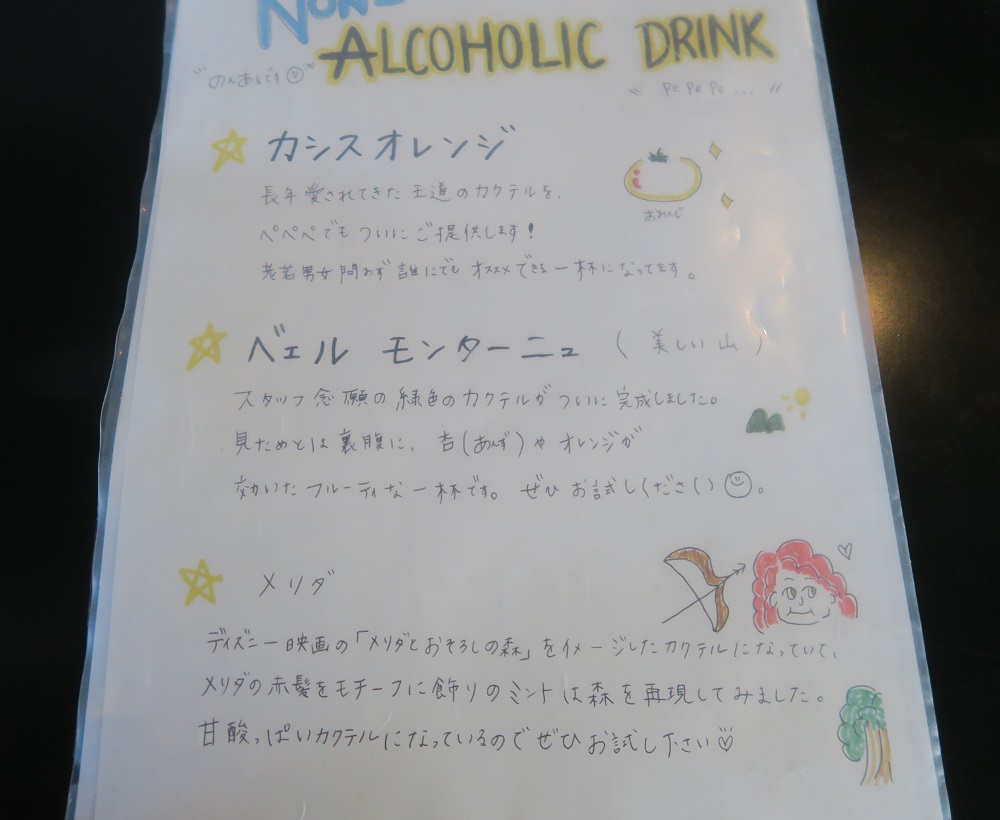 NON-
ALCOHOLIC DRINK
"のんあるです"
"PePePe..."
カシスオレンジ
長年愛されてきた王道のカクテルを、
ぺぺぺでもついにご提供します!
老若男女問わず誰にでもオススメできる一杯になってます。
おれんじ
ベェル モンターニュ (美しい山)
スタッフ念願の緑色のカクテルがついに完成しました。
見ためとは裏腹に、杏(あんず)やオレンジが
効いたフルーティな一杯です。ぜひお試しください。
メリダ
ディズニー映画の「メリダとおそろしの森」をイメージしたカクテルになっていて、
メリダの赤髪をモチーフに飾りのミントは森を再現してみました。
甘酸っぱいカクテルになっているのでぜひお試し下さい♡